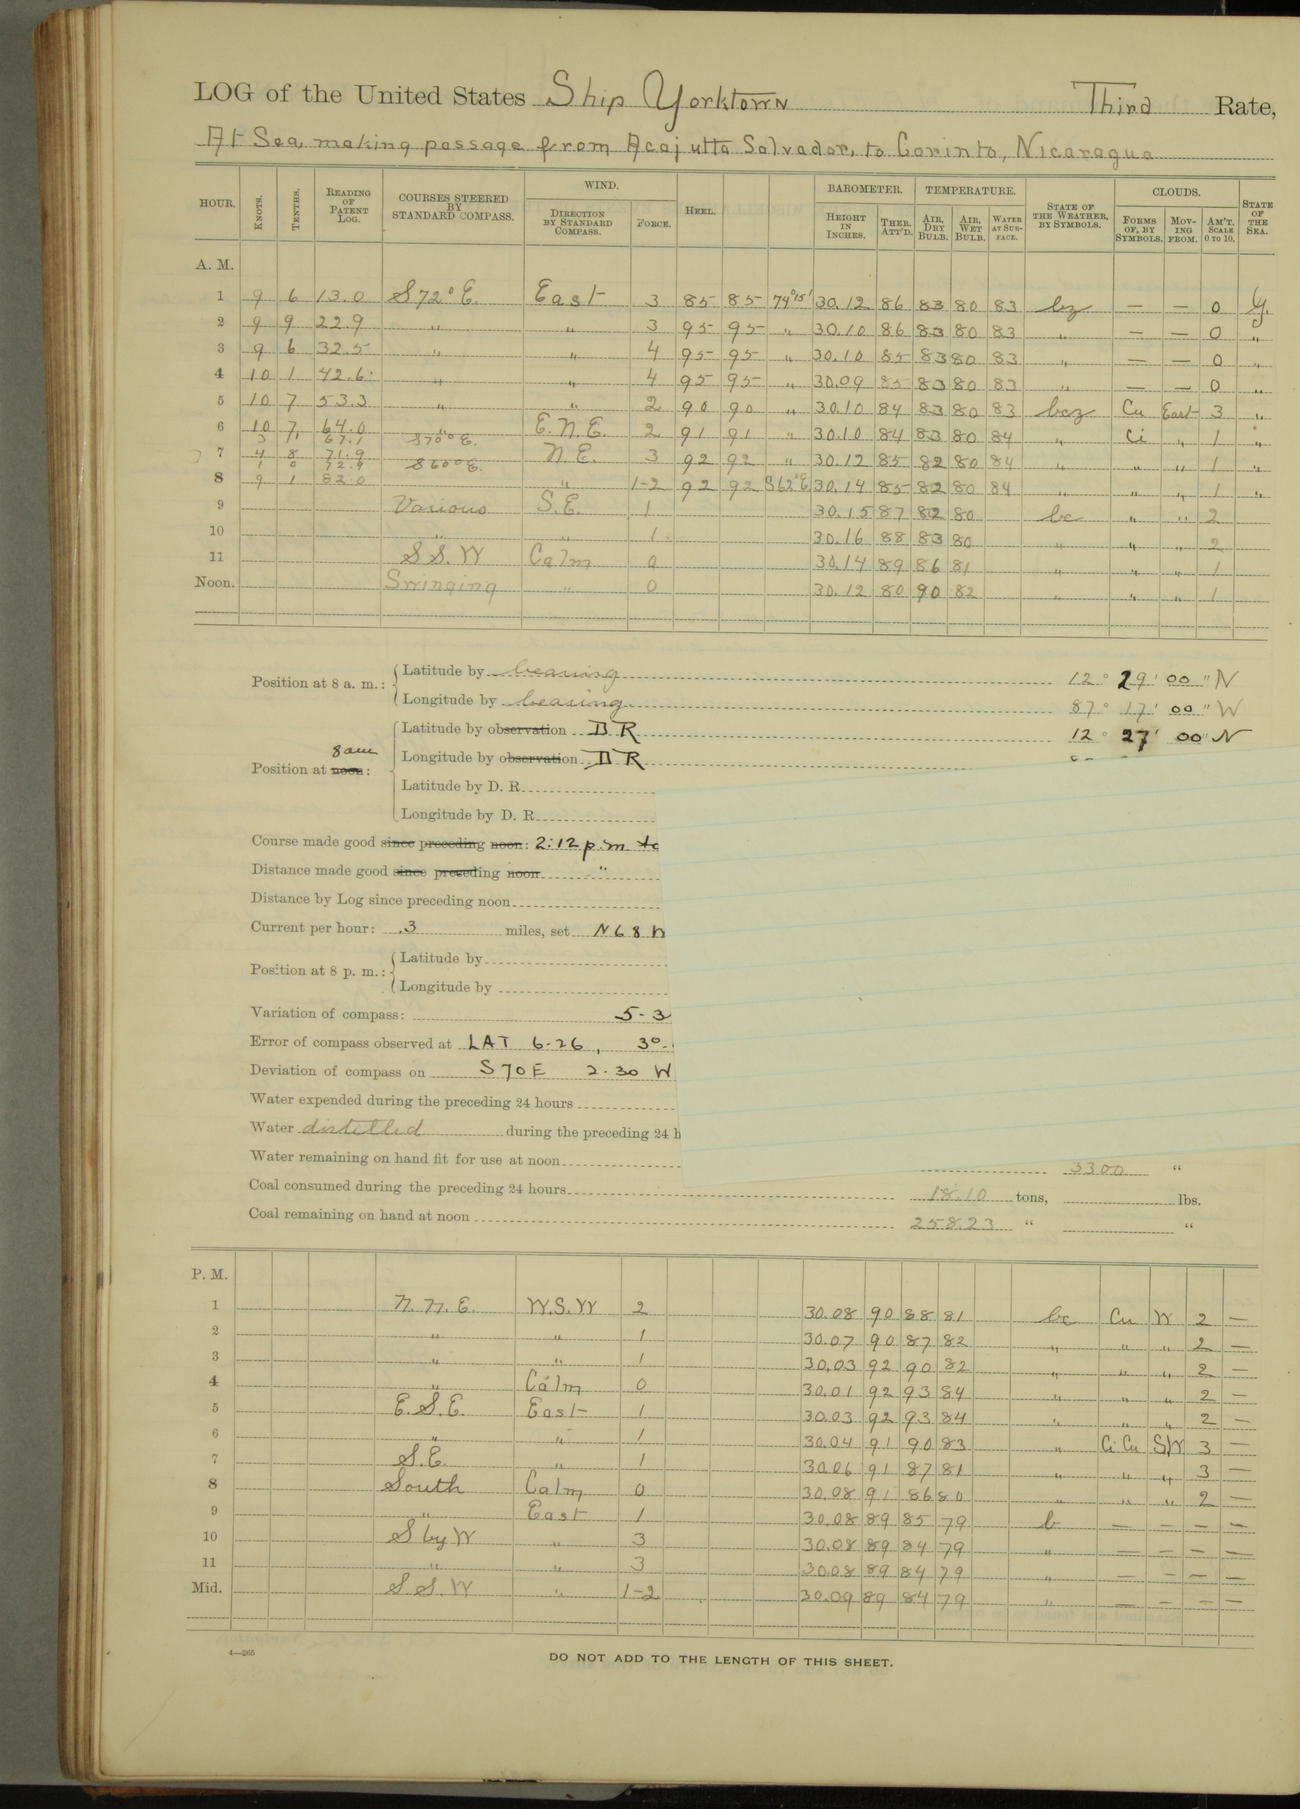 LOG of the United States Ship Yorktown Third Rate,
At Sea, making passage from Acajutta Salvador, to Corinto, Nicaragua
HOUR. KNOTS. TENTHS. READING OF PATENT LOG. COURSES STEERED BY STANDARD COMPASS. WIND. DIRECTION BY STANDARD COMPASS. FORCE. HEEL. BAROMETER. HEIGHT IN INCHES. THER. ATT'D. TEMPERATURE. AIR, DRY BULB. AIR, WET BULB. WATER AT SURFACE. STATE OF THE WEATHER, BY SYMBOLS. CLOUDS. FORMS OF, BY SYMBOLS. MOVING FROM. AM'T. SCALE 0 TO 10. STATE OF THE SEA.
A. M.
1 9 6 13.0 S 72° E. East 3 85 85 74° 15' 30.12 86 83 80 83 bz — — 0 Y.
2 9 9 22.9 " " 3 95 95 " 30.10 86 83 80 83 " — — 0 "
3 9 6 32.5 " " 4 95 95 " 30.10 85 83 80 83 " — — 0 "
4 10 1 42.6 " " 4 95 95 " 30.09 85 83 80 83 " — — 0 "
5 10 7 53.3 " " 2 90 90 " 30.10 84 83 80 83 bcz Cu East 3 "
6 10 7 64.0 " E.N.E. 2 91 91 " 30.10 84 83 80 84 " Ci " 1 "
3 1 67.1 S 70° E.
7 4 8 71.9 N.E. 3 92 92 " 30.12 85 82 80 84 " " " 1 "
1 0 72.9 S 60° E.
8 9 1 82.0 " 1-2 92 92 S62°E 30.14 85 82 80 84 " " " 1 "
9 Various S.E. 1 30.15 87 82 80 bc " " 2
10 " " 1 30.16 88 83 80 " " " 2
11 S.S.W Calm 0 30.14 89 86 81 " " " 1
Noon. Swinging " 0 30.12 80 90 82 " " " 1
Position at 8 a. m.: Latitude by bearing 12° 29' 00" N
Longitude by bearing 87° 17' 00" W
Latitude by observation D R 12° 27' 00" N
8 am
Position at noon: Longitude by observation D R
Latitude by D. R.
Longitude by D. R.
Course made good since preceding noon: 2:12 p.m to
Distance made good since preceding noon "
Distance by Log since preceding noon
Current per hour: .3 miles, set N 68 W
Position at 8 p. m.: Latitude by
Longitude by
Variation of compass: 5-3
Error of compass observed at LAT 6-26, 30-
Deviation of compass on S 70 E 2-30 W
Water expended during the preceding 24 hours
Water distilled during the preceding 24 h
Water remaining on hand fit for use at noon 3300 "
Coal consumed during the preceding 24 hours 18.10 tons, lbs.
Coal remaining on hand at noon 258.23 " "
P. M.
1 N.N.E. W.S.W 2 30.08 90 88 81 bc Cu W 2 —
2 " " 1 30.07 90 87 82 " " " 2 —
3 " " 1 30.03 92 90 82 " " " 2 —
4 " Calm 0 30.01 92 93 84 " " " 2 —
5 E.S.E. East 1 30.03 92 93 84 " " " 2 —
6 " " 1 30.04 91 90 83 " Ci Cu SW 3 —
7 S.E. " 1 30.06 91 87 81 " " " 3 —
8 South Calm 0 30.08 91 86 80 " " " 2 —
9 " East 1 30.08 89 85 79 b — — — —
10 S by W " 3 30.08 89 84 79 " — — — —
11 " " 3 30.08 89 84 79 " — — — —
Mid. S.S.W " 1-2 30.09 89 84 79 " — — — —
4—265
DO NOT ADD TO THE LENGTH OF THIS SHEET.